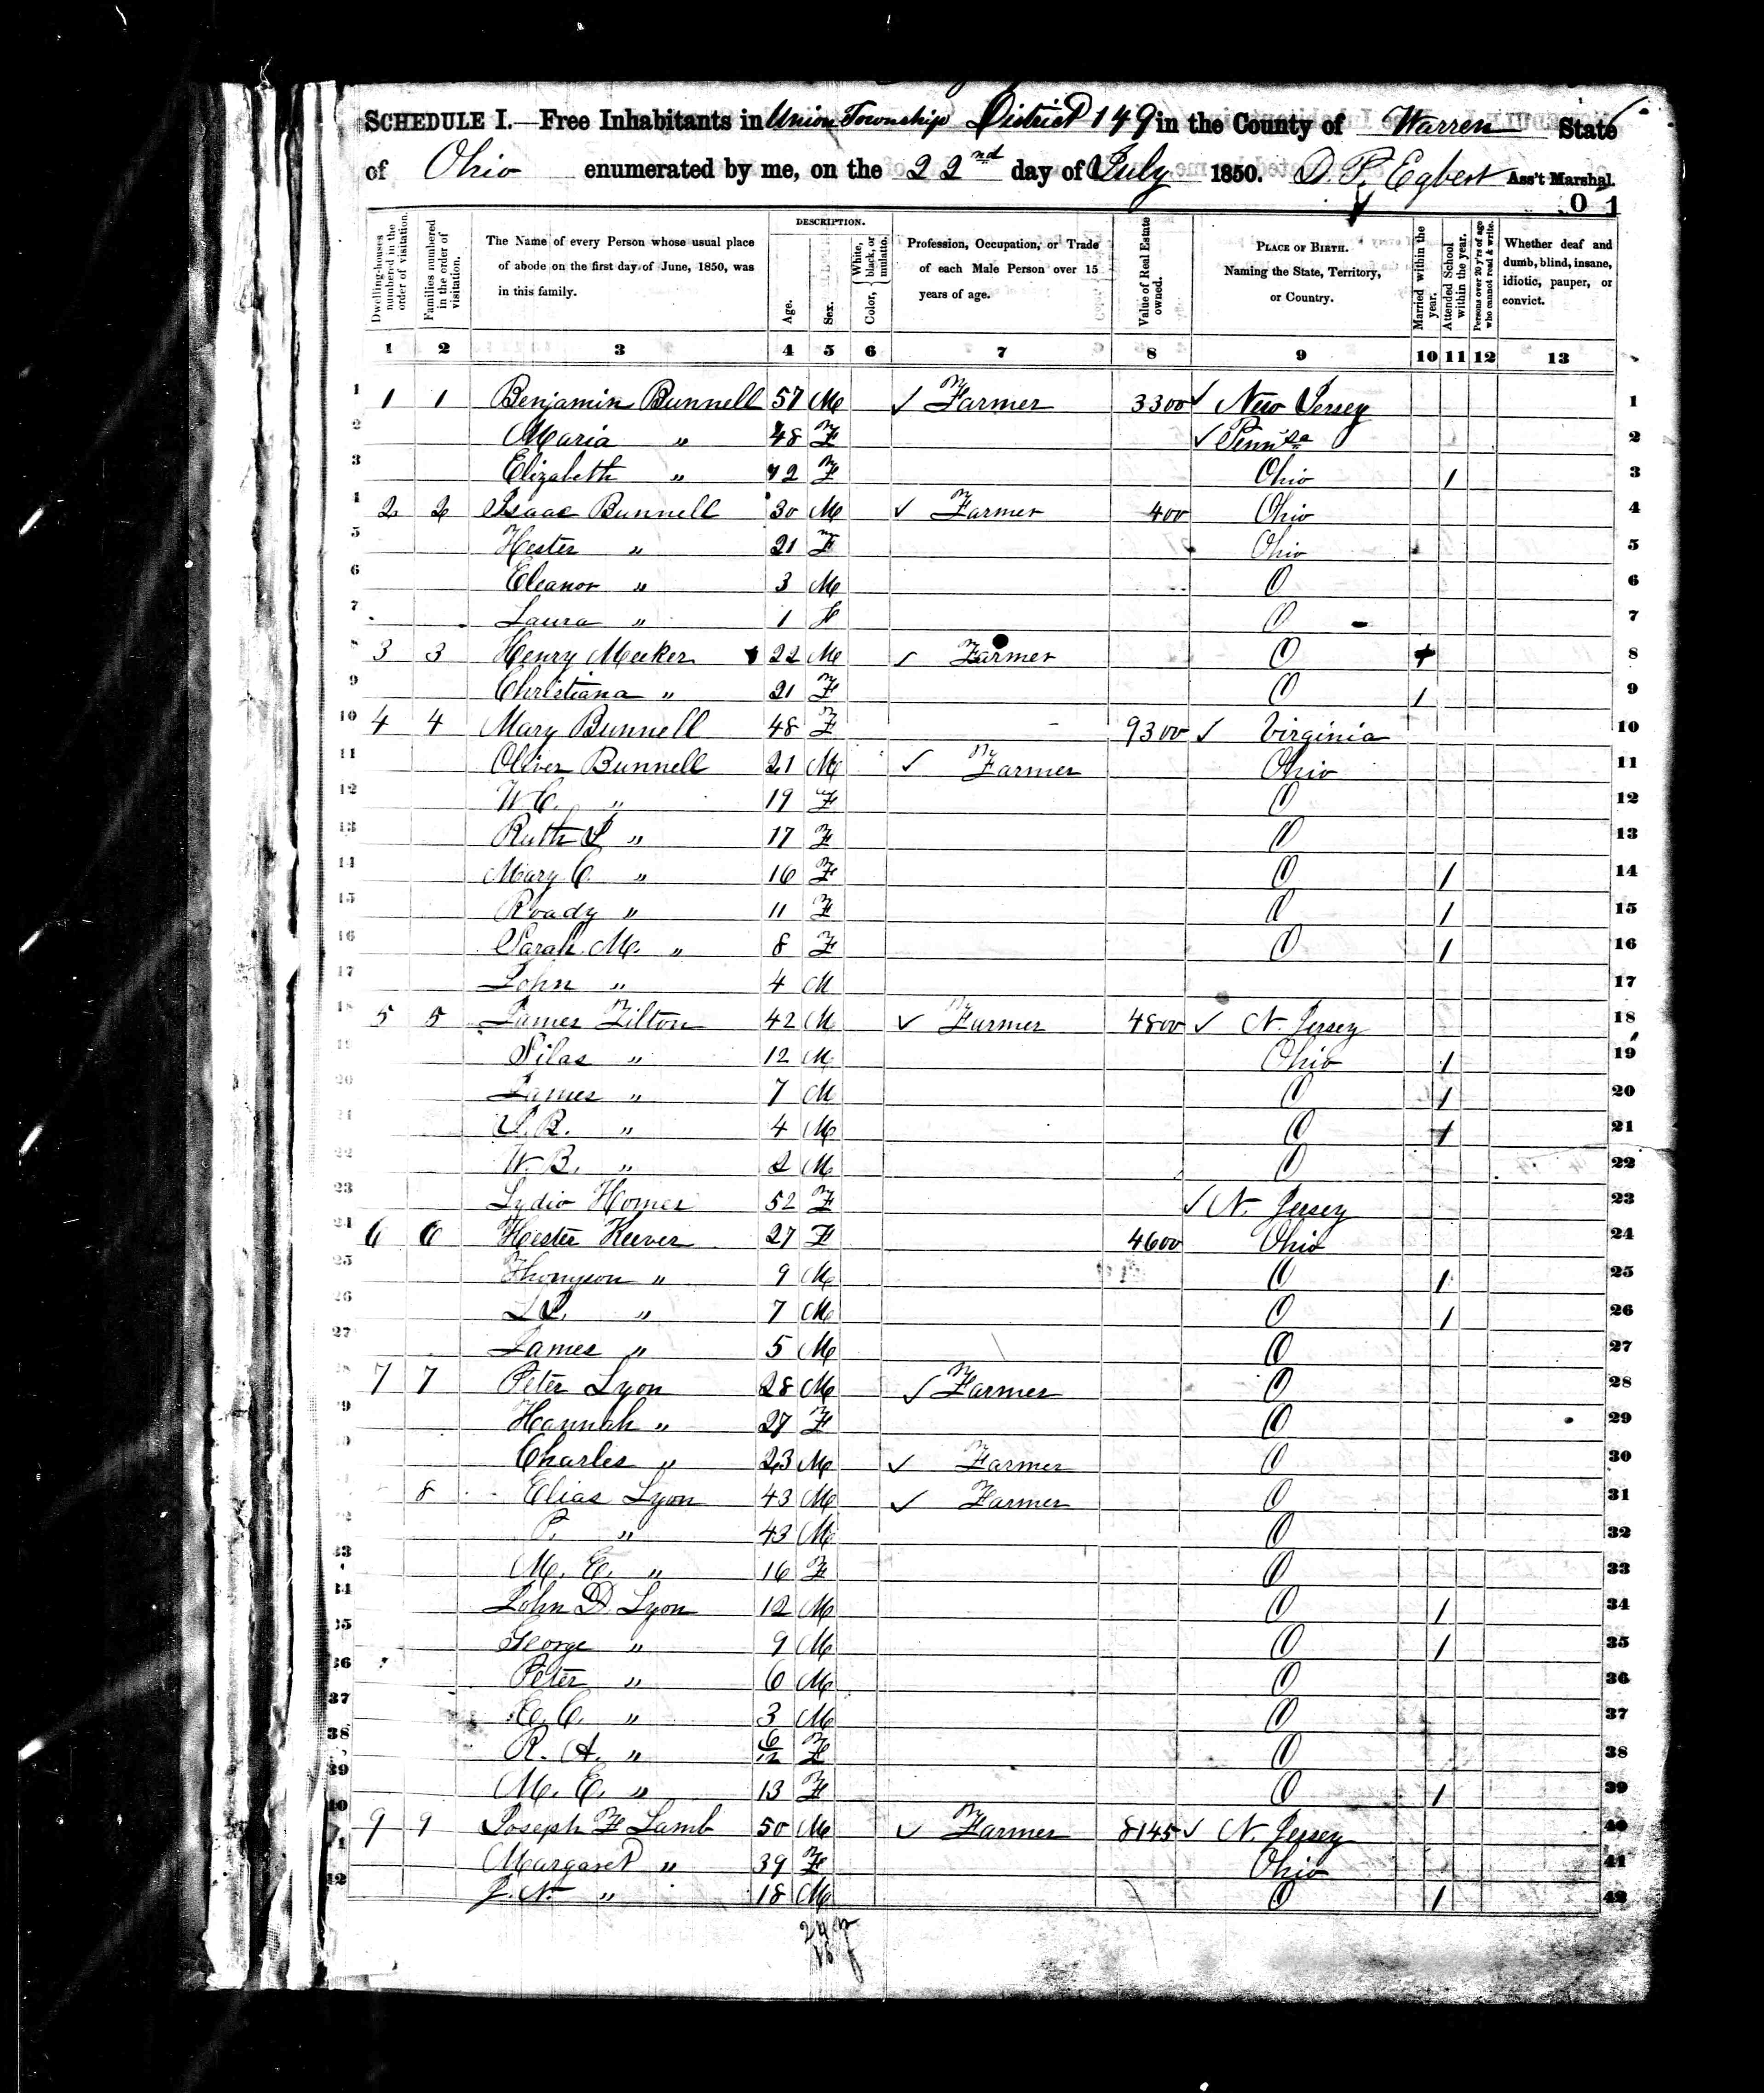 SCHEDULE I.—Free Inhabitants in Union Township District 149 in the County of Warren State
of Ohio enumerated by me, on the 22nd day of July 1850. D. P. Egbert Ass't Marshal.
01
Dwelling-houses numbered in the order of visitation.
Families numbered in the order of visitation.
The Name of every Person whose usual place of abode on the first day of June, 1850, was in this family.
DESCRIPTION.
Age.
Sex.
Color, { White, black, or mulatto.
Profession, Occupation, or Trade of each Male Person over 15 years of age.
Value of Real Estate owned.
PLACE OF BIRTH. Naming the State, Territory, or Country.
Married within the year.
Attended School within the year.
Persons over 20 y'rs of age who cannot read & write.
Whether deaf and dumb, blind, insane, idiotic, pauper, or convict.
1 2 3 4 5 6 7 8 9 10 11 12 13
1 1 1 Benjamin Bunnell 57 M ✓ Farmer 3300 ✓ New Jersey 1
2 Maria " 48 F ✓ Penn'sa 2
3 Elizabeth " 12 F Ohio 1 3
2 2 Isaac Bunnell 30 M ✓ Farmer 400 Ohio 4
5 Hester " 21 F Ohio 5
6 Eleanor " 3 M O 6
7 Laura " 1 F O 7
8 3 3 Henry Meeker 22 M ✓ Farmer O 8
9 Christiana " 21 F O 1 9
10 4 4 Mary Bunnell 48 F 9300 ✓ Virginia 10
11 Oliver Bunnell 21 M ✓ Farmer Ohio 11
12 W. C. " 19 F O 12
13 Ruth " 17 F O 13
14 Mary C. " 16 F O 1 14
15 Roady " 11 F O 1 15
16 Sarah M. " 8 F O 1 16
17 John " 4 M 17
18 5 5 James Tilton 42 M ✓ Farmer 4800 ✓ N. Jersey 18
19 Silas " 12 M Ohio 1 19
20 James " 7 M O 1 20
21 S. B. " 4 M O 1 21
22 W. B. " 2 M O 22
23 Lydia Homer 52 F ✓ N. Jersey 23
24 6 6 Hester Keever 27 F 4600 Ohio 24
25 Thompson " 9 M O 1 25
26 " 7 M O 1 26
27 James " 5 M O 27
7 7 Peter Lyon 28 M ✓ Farmer O 28
Hannah " 27 F O 29
Charles " 23 M ✓ Farmer O 30
8 Elias Lyon 43 M ✓ Farmer O 31
P. " 43 M O 32
33 M. E. " 16 F O 33
34 John D. Lyon 12 M O 1 34
35 George " 9 M O 1 35
36 Peter " 6 M O 36
37 C. C. " 3 M O 37
38 R. A. " 6/12 F O 38
39 M. E. " 13 F O 1 39
40 9 9 Joseph F Lamb 50 M ✓ Farmer 8145 ✓ N. Jersey 40
41 Margaret " 39 F Ohio 41
42 J. N. " 18 M O 1 42